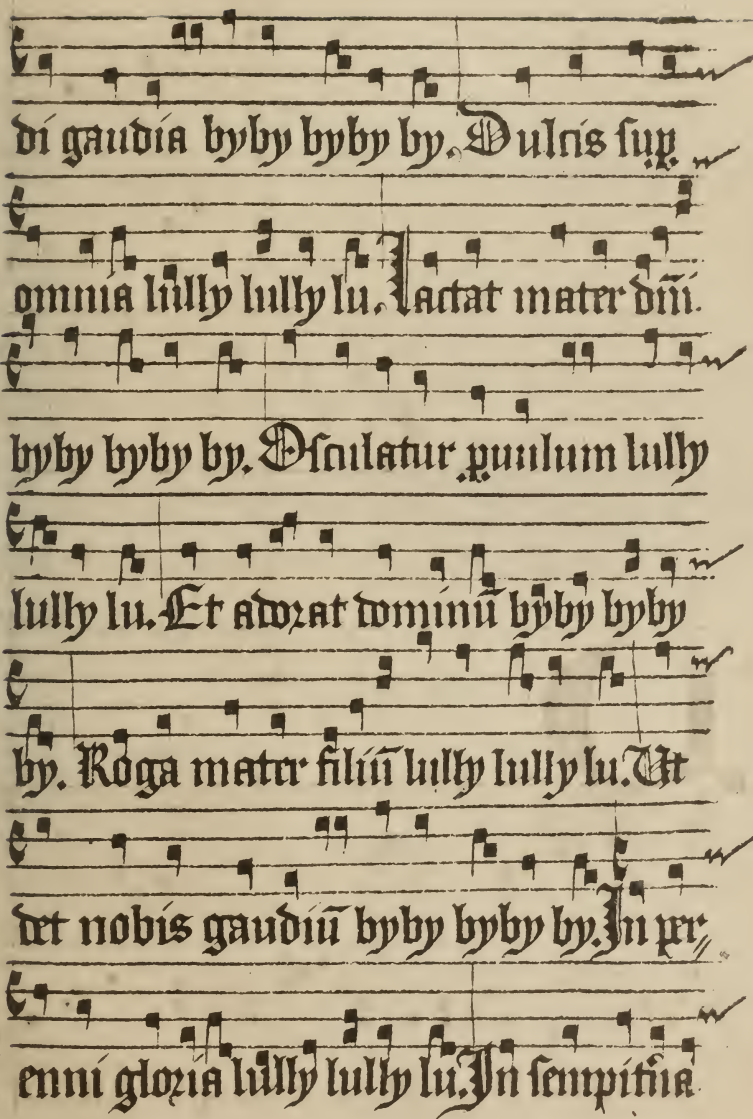 di gaudia byby byby by. Dulcis sup̲
omnia lully lully lu. Lactat mater dñi.
byby byby by. Osculatur p̲uulum lully
lully lu. Et adorat dominū byby byby
by. Roga mater filiū lully lully lu. Ut
det nobis gaudiū byby byby by. In per⸗
enni gloria lully lully lu. In sempit̃na